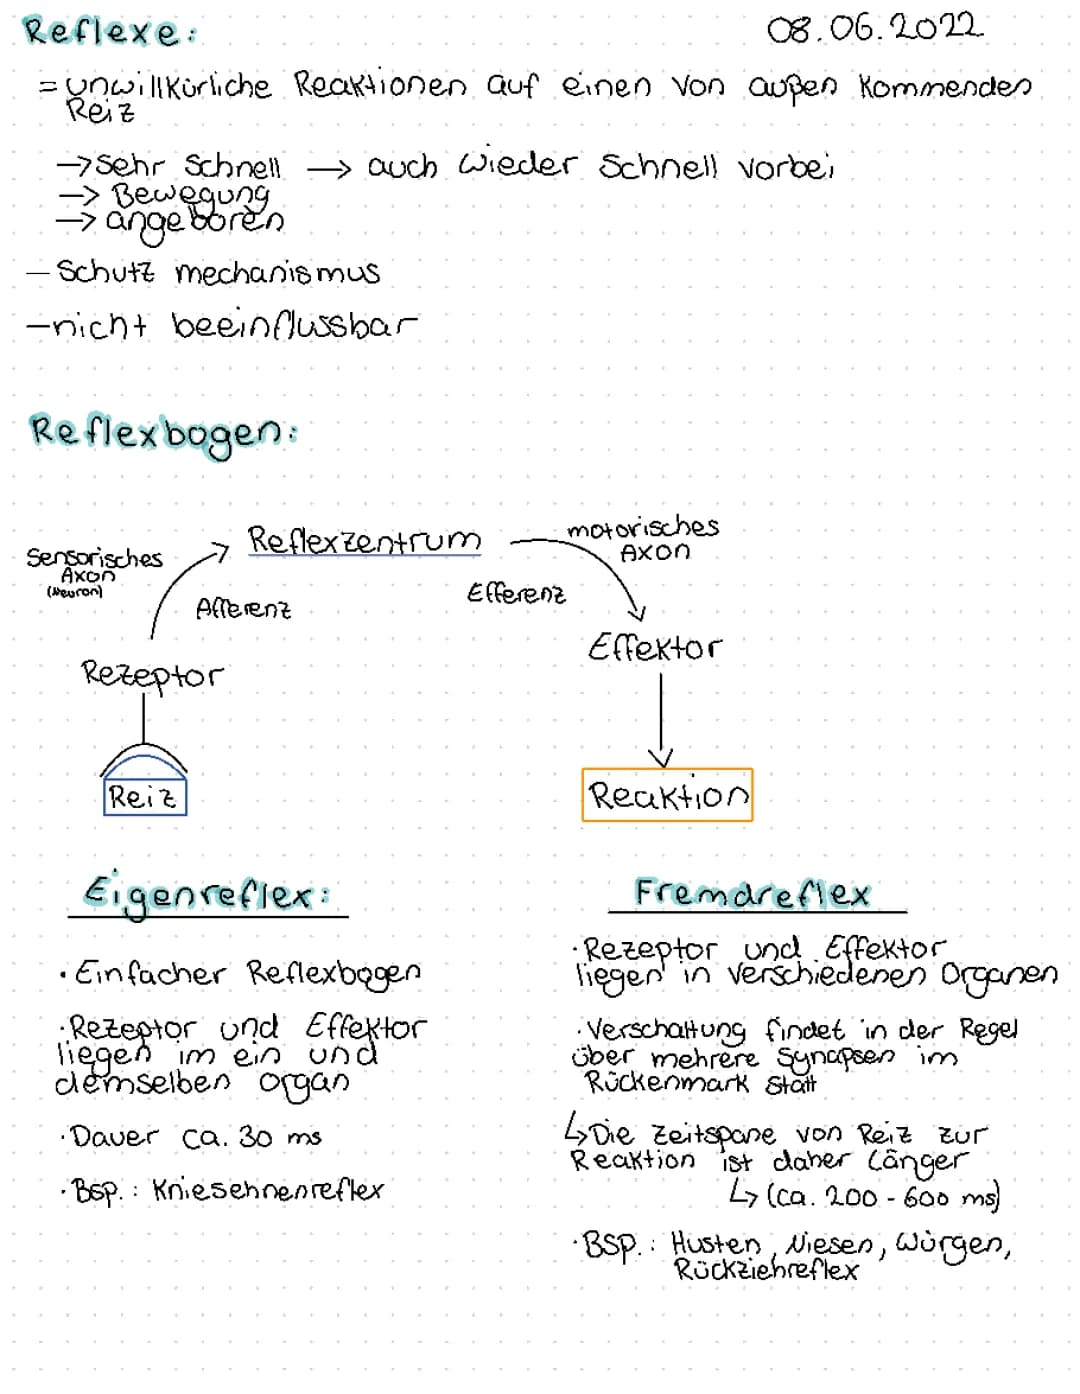 Reflexe:
08.06.2022
= unwillkürliche Reaktionen auf einen von außen kommenden
Reiz
→ sehr schnell → auch wieder schnell vorbei
→ Bewegung
→ angeboren
- Schutz mechanismus
- nicht beeinflussbar
Reflexbogen:
Sensorisches
Axon
(Neuron)
Afferenz
Reflexzentrum
Efferenz
motorisches
Axon
Rezeptor
Effektor
Reiz
Reaktion
Eigenreflex:
· Einfacher Reflexbogen
· Rezeptor und Effektor
liegen im ein und
demselben organ
· Dauer ca. 30 ms
· Bsp.: Kniesehnenreflex
Fremdreflex
· Rezeptor und Effektor
liegen in verschiedenen Organen
· Verschaltung findet in der Regel
über mehrere Synapsen im
Rückenmark statt
↳ Die Zeitspane von Reiz zur
Reaktion ist daher länger
↳ (ca. 200 - 600 ms)
· BSP.: Husten, Niesen, Würgen,
Rückziehreflex